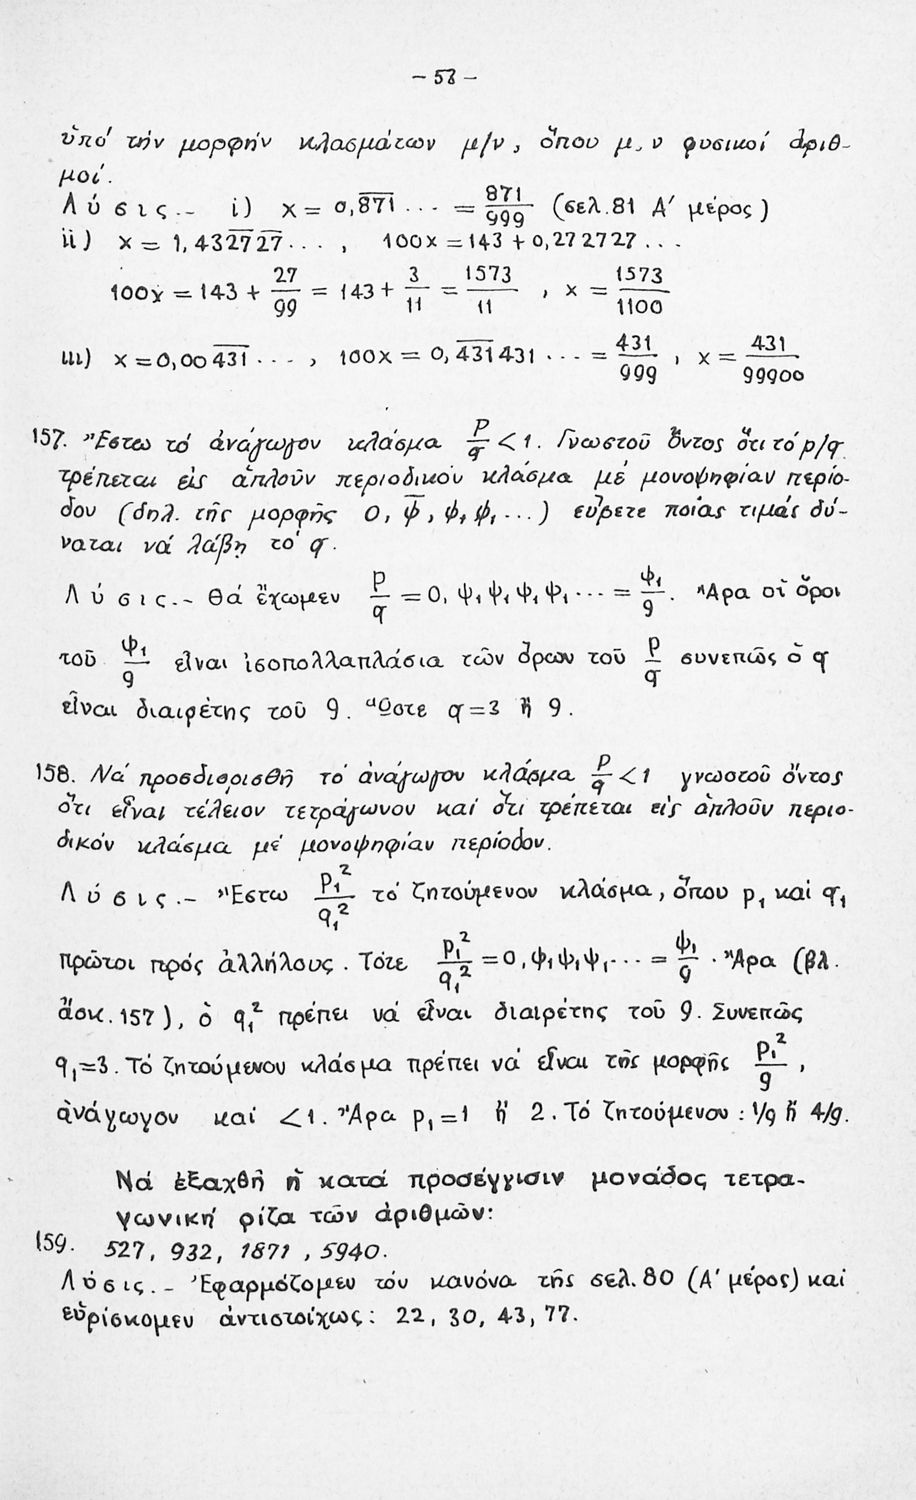 - 58 -
ὑπό τήν μορφήν κλασμάτων μ/ν, ὅπου μ, ν φυσικοί ἀριθ-
μοί.
Λύσις.- i) x = 0,871... = 871/999 (σελ.81 Α' μέρος)
ii) x = 1,432727..., 100x = 143 + 0,272727...
100x = 143 + 27/99 = 143 + 3/11 = 1573/11 , x = 1573/1100
iii) x = 0,00431..., 100x = 0,431431... = 431/999 , x = 431/99900
157. Ἔστω τό ἀνάγωγον κλάσμα p/q < 1. Γνωστοῦ ὄντος ὅτι τό p/q
τρέπεται εἰς ἁπλοῦν περιοδικόν κλάσμα μέ μονοψηφίαν περίο-
δου (δηλ. τῆς μορφῆς 0, ψ̅, ψ, ψ, ...) εὕρετε ποίας τιμάς δύ-
ναται νά λάβῃ τό q.
Λύσις.- Θά ἔχωμεν p/q = 0, ψ₁ψ₁ψ₁ψ₁... = ψ₁/9. Ἄρα οἱ ὅροι
τοῦ ψ₁/9 εἶναι ἰσοπολλαπλάσια τῶν ὅρων τοῦ p/q συνεπῶς ὁ q
εἶναι διαιρέτης τοῦ 9. Ὥστε q = 3 ἤ 9.
158. Νά προσδιορισθῇ τό ἀνάγωγον κλάσμα p/q < 1 γνωστοῦ ὄντος
ὅτι εἶναι τέλειον τετράγωνον καί ὅτι τρέπεται εἰς ἁπλοῦν περιο-
δικόν κλάσμα μέ μονοψηφίαν περίοδον.
Λύσις.- Ἔστω p₁²/q₁² τό ζητούμενον κλάσμα, ὅπου p₁ καί q₁
πρῶτοι πρός ἀλλήλους. Τότε p₁²/q₁² = 0,ψ₁ψ₁ψ₁... = ψ₁/9. Ἄρα (βλ.
ἄσκ. 157), ὁ q₁² πρέπει νά εἶναι διαιρέτης τοῦ 9. Συνεπῶς
q₁=3. Τό ζητούμενον κλάσμα πρέπει νά εἶναι τῆς μορφῆς p₁²/9 ,
ἀνάγωγον καί <1. Ἄρα p₁=1 ἤ 2. Τό ζητούμενον : 1/9 ἤ 4/9.
Νά ἐξαχθῇ ἡ κατά προσέγγισιν μονάδος τετρα-
γωνική ρίζα τῶν ἀριθμῶν:
159. 527, 932, 1871, 5940.
Λύσις.- Ἐφαρμόζομεν τόν κανόνα τῆς σελ.80 (Α' μέρος) καί
εὑρίσκομεν ἀντιστοίχως: 22, 30, 43, 77.